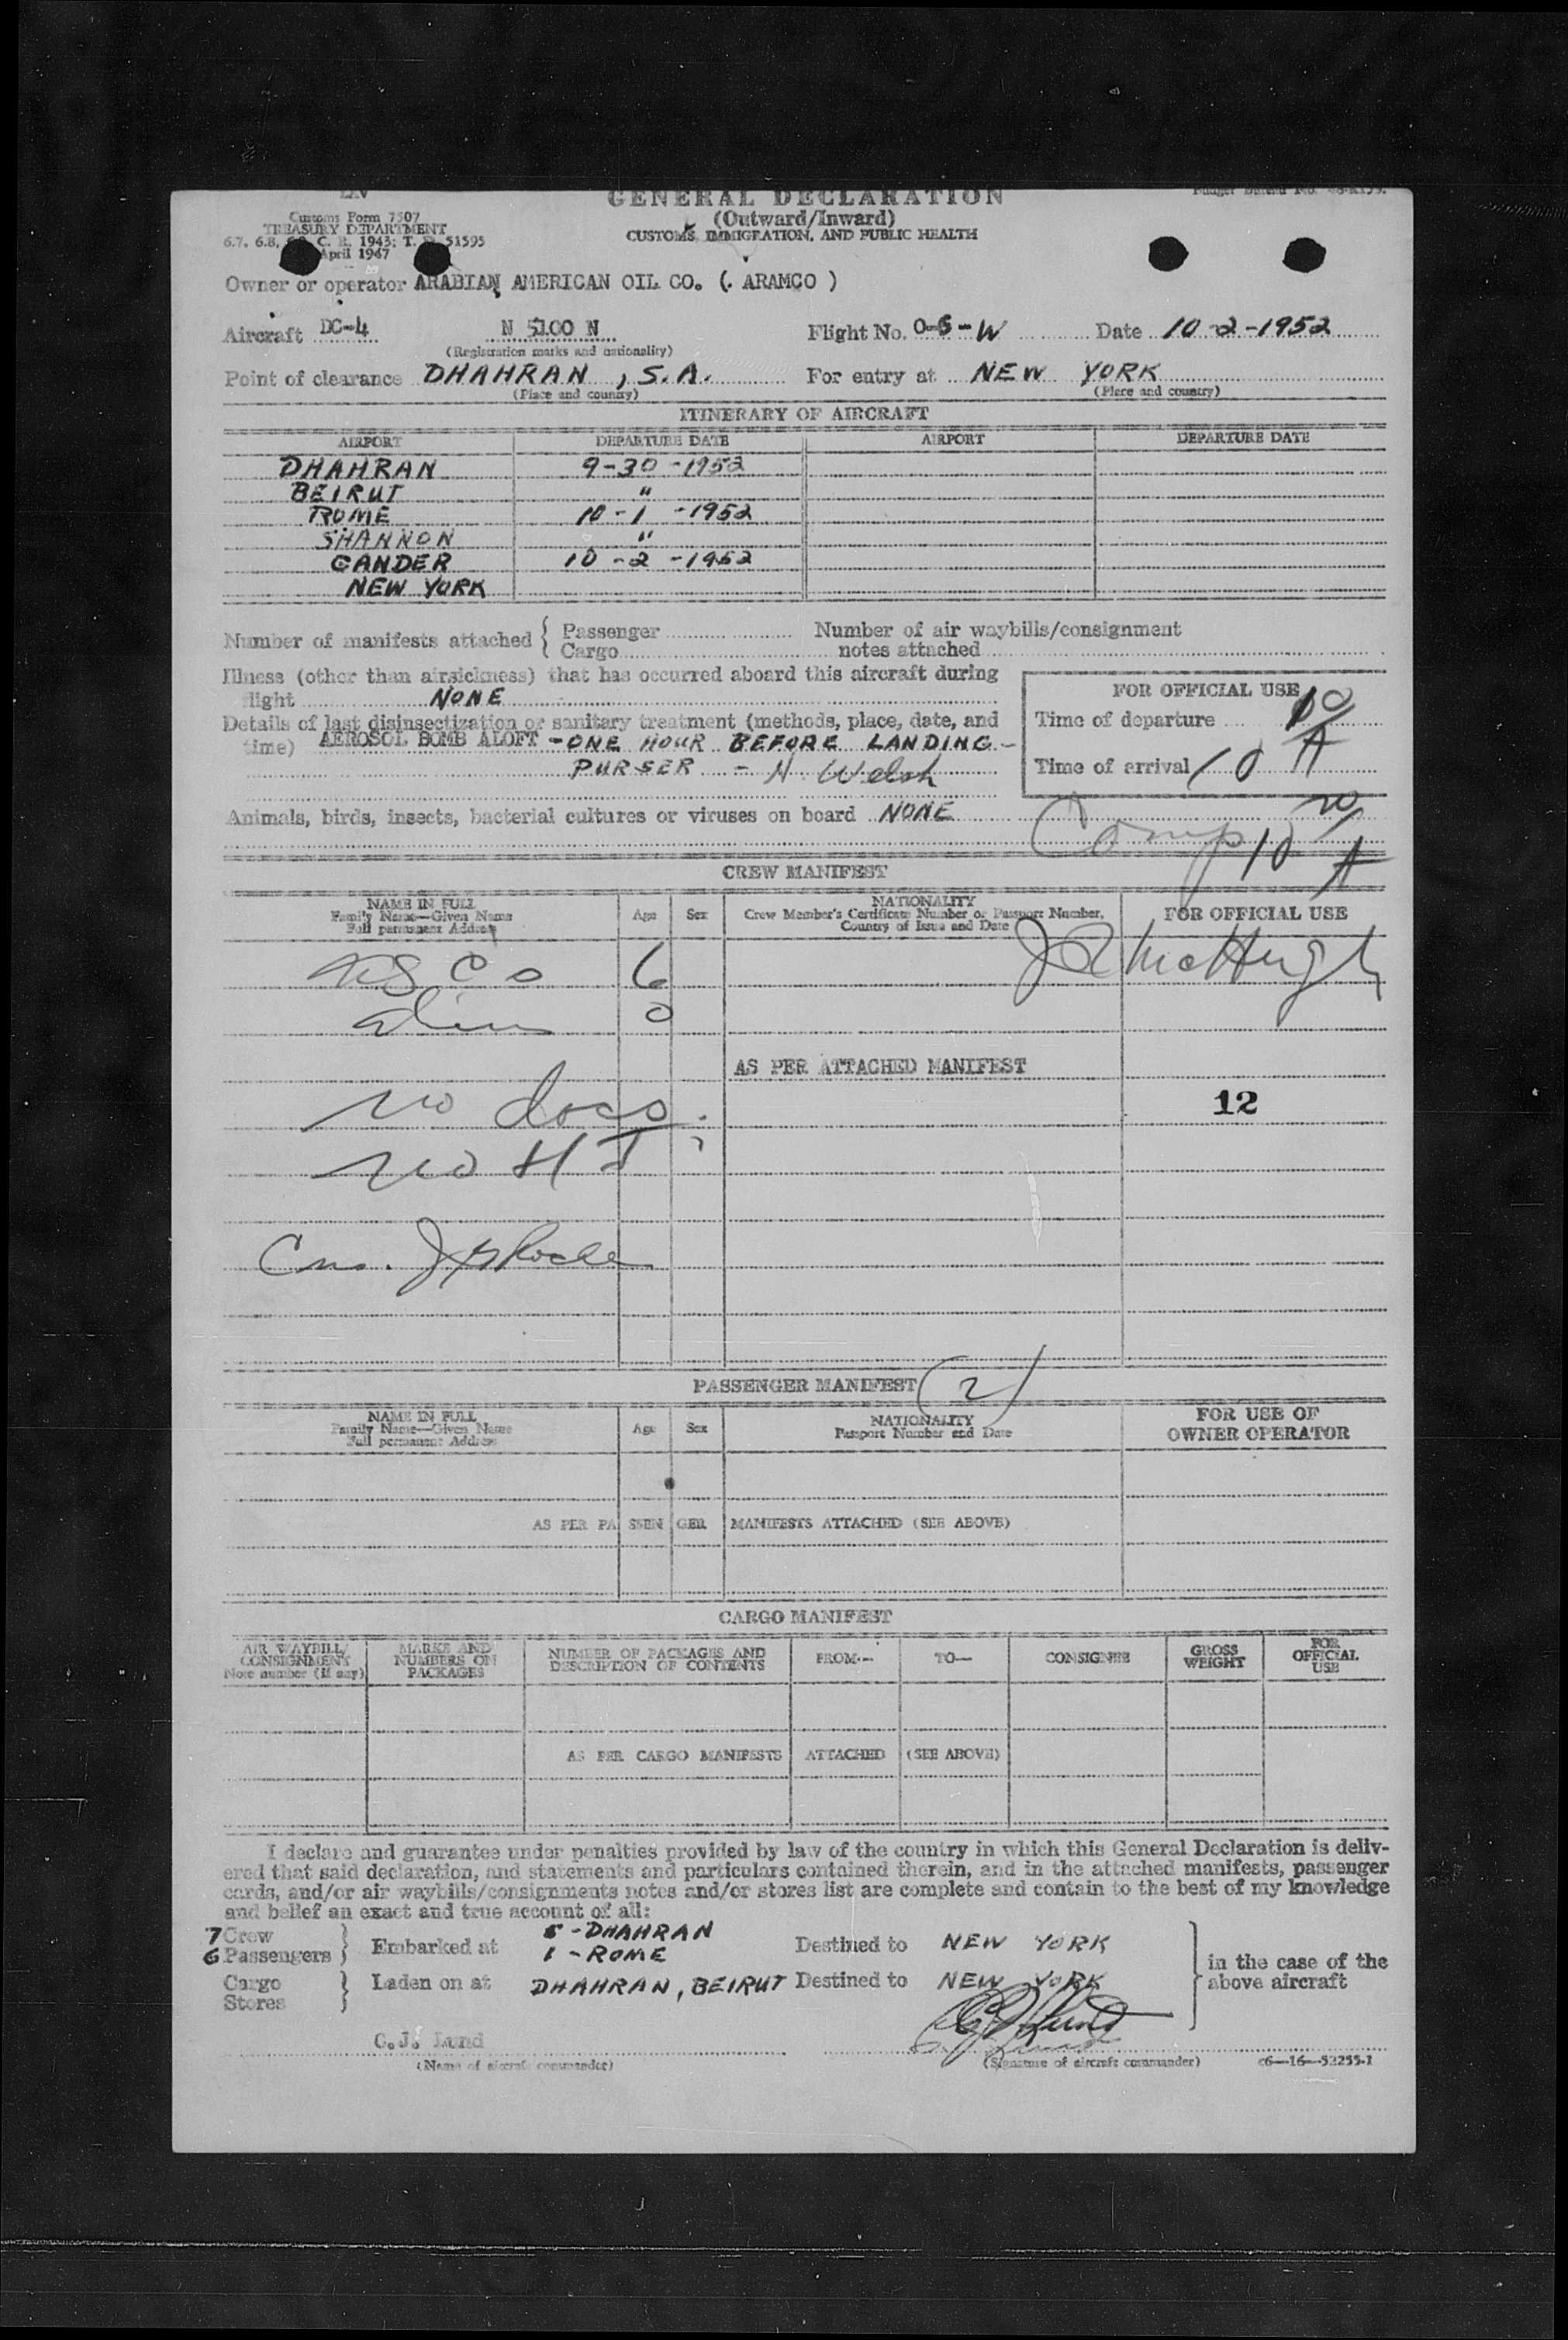 GENERAL DECLARATION
Customs Form 7507
TREASURY DEPARTMENT
6.7, 6.8, C. R. 1943; T. 51595
April 1947
(Outward/Inward)
CUSTOMS, IMMIGRATION, AND PUBLIC HEALTH
Owner or operator ARABIAN AMERICAN OIL CO. ( ARAMCO )
Aircraft DC-4 N 5100 N Flight No. Date 10-2-1952
(Registration marks and nationality)
Point of clearance DHAHRAN, S.A. For entry at NEW YORK
(Place and country) (Place and country)
ITINERARY OF AIRCRAFT
AIRPORT DEPARTURE DATE AIRPORT DEPARTURE DATE
DHAHRAN 9-30-1952
BEIRUT "
ROME 10-1-1952
SHANNON "
GANDER 10-2-1952
NEW YORK
Number of manifests attached { Passenger Number of air waybills/consignment
Cargo notes attached
Illness (other than airsickness) that has occurred aboard this aircraft during
flight NONE
FOR OFFICIAL USE
Details of last disinsectization or sanitary treatment (methods, place, date, and
Time of departure
time) AEROSOL BOMB ALOFT - ONE HOUR BEFORE LANDING -
PURSER - H. Welsh
Time of arrival 10 10/A
Animals, birds, insects, bacterial cultures or viruses on board NONE
Comp 10 20/A
CREW MANIFEST
NAME IN FULL
Family Name—Given Name
Full permanent Address
Age Sex
NATIONALITY
Crew Member's Certificate Number or Passport Number,
Country of Issue and Date
FOR OFFICIAL USE
6
J R McHugh
0
AS PER ATTACHED MANIFEST
no docs.
12
no H T
PASSENGER MANIFEST (2)
NAME IN FULL
Family Name—Given Name
Full permanent Address
Age Sex
NATIONALITY
Passport Number and Date
FOR USE OF
OWNER OPERATOR
AS PER PASSENGER MANIFESTS ATTACHED (SEE ABOVE)
CARGO MANIFEST
AIR WAYBILL/
CONSIGNMENT
Note number (if any)
MARKS AND
NUMBERS ON
PACKAGES
NUMBER OF PACKAGES AND
DESCRIPTION OF CONTENTS
FROM—
TO—
CONSIGNEE
GROSS
WEIGHT
FOR
OFFICIAL
USE
AS PER CARGO MANIFESTS ATTACHED (SEE ABOVE)
I declare and guarantee under penalties provided by law of the country in which this General Declaration is deliv-
ered that said declaration, and statements and particulars contained therein, and in the attached manifests, passenger
cards, and/or air waybills/consignments notes and/or stores list are complete and contain to the best of my knowledge
and belief an exact and true account of all:
7 Crew
6 Passengers } Embarked at 5 - DHAHRAN
1 - ROME
Destined to NEW YORK
in the case of the
above aircraft
Cargo
Stores } Laden on at DHAHRAN, BEIRUT Destined to NEW YORK
C.J. Lund
C J Lund
(Name of aircraft commander) (Signature of aircraft commander) c6—16—52255-1